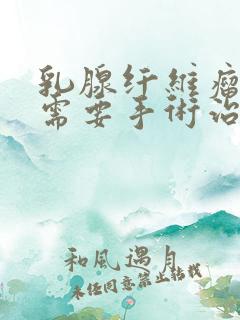 乳腺纤维瘤
需要手術治
和風遇月
未经同意禁止转载